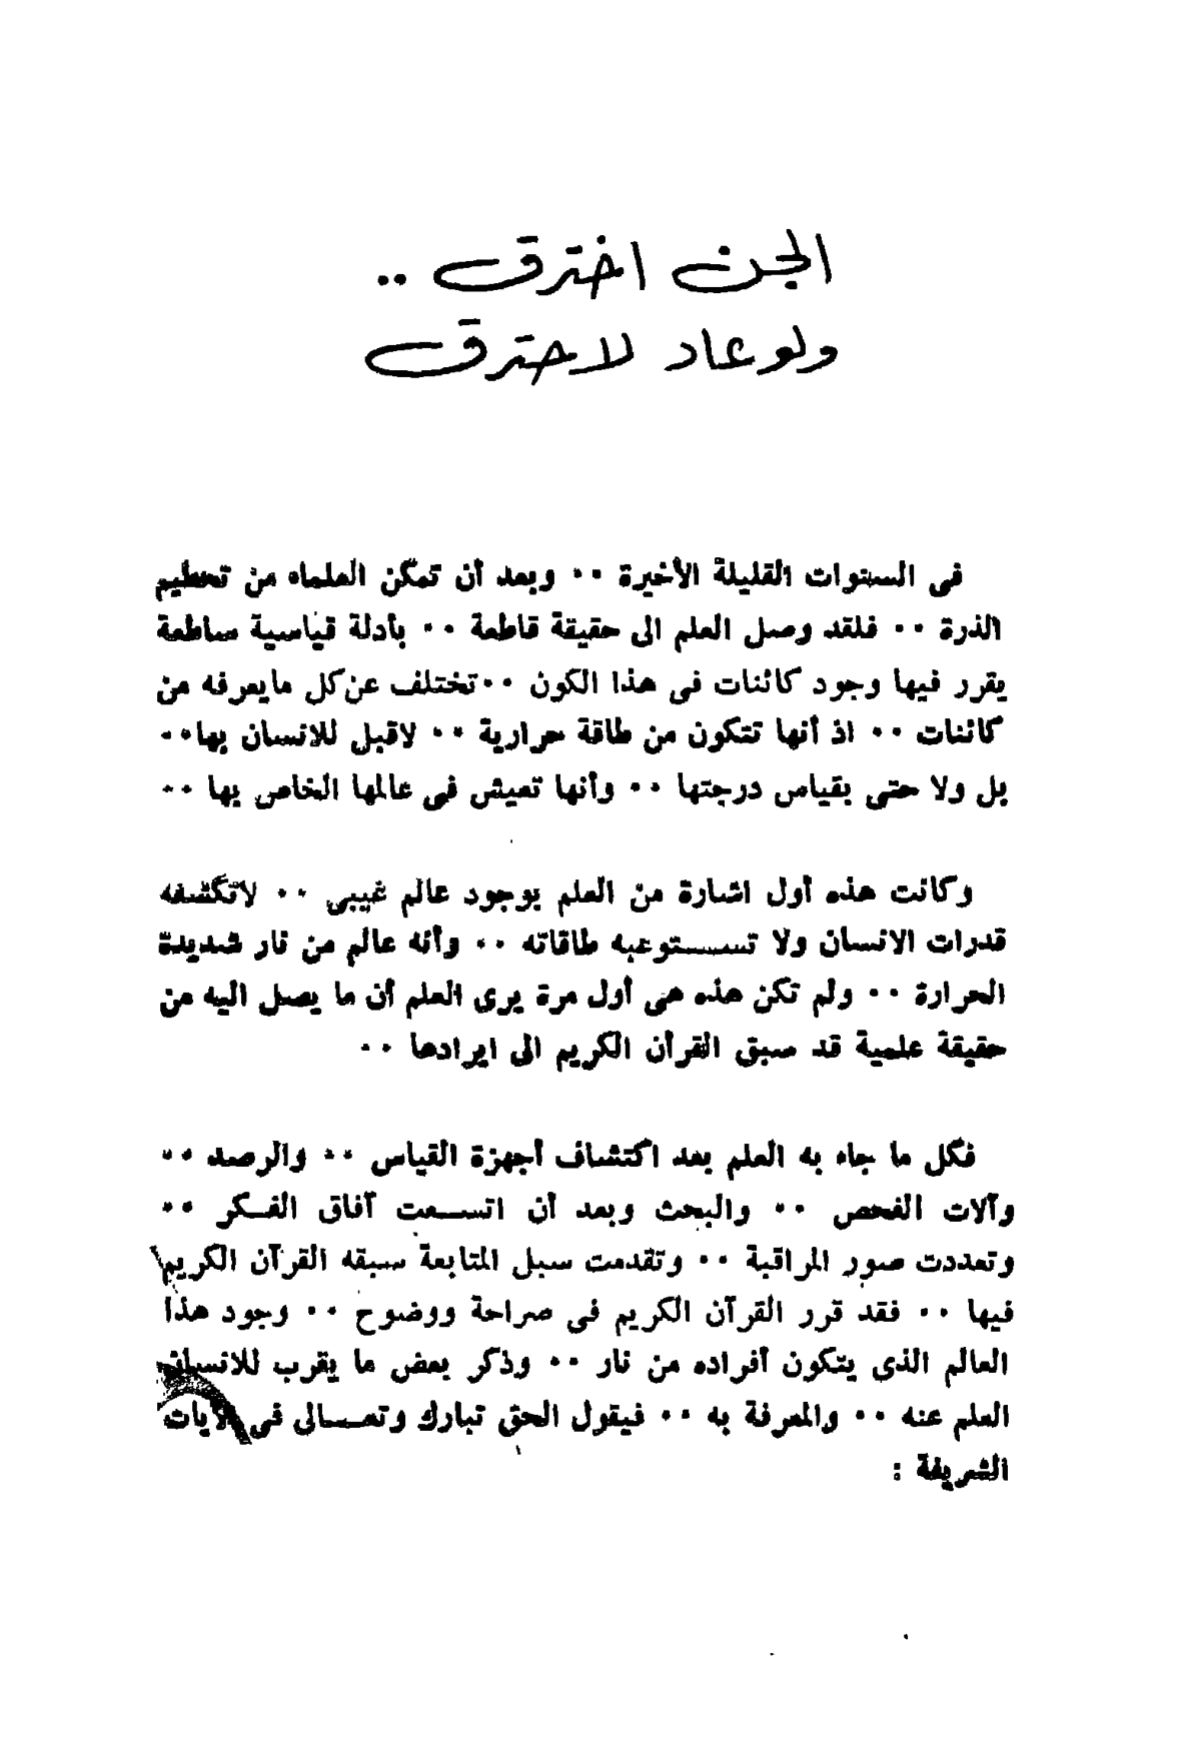 الجن اخترق ..
ولو عاد لاحترق
فى السنوات القليلة الأخيرة ٠٠ وبعد أن تمكن العلماء من تحطيم
الذرة ٠٠ فلقد وصل العلم الى حقيقة قاطعة ٠٠ بأدلة قياسية ساطعة
يقرر فيها وجود كائنات فى هذا الكون ٠٠ تختلف عن كل مايعرفه من
كائنات ٠٠ اذ أنها تتكون من طاقة حرارية ٠٠ لاقبل للانسان بها ٠٠
بل ولا حتى بقياس درجتها ٠٠ وأنها تعيش فى عالمها الخاص بها ٠٠
وكانت هذه أول اشارة من العلم بوجود عالم غيبى ٠٠ لاتكشفه
قدرات الانسان ولا تستوعبه طاقاته ٠٠ وأنه عالم من نار شديدة
الحرارة ٠٠ ولم تكن هذه هى أول مرة يرى العلم أن ما يصل اليه من
حقيقة علمية قد سبق القرآن الكريم الى ايرادها ٠٠
فكل ما جاء به العلم بعد اكتشاف أجهزة القياس ٠٠ والرصد ٠٠
وآلات الفحص ٠٠ والبحث وبعد أن اتسعت آفاق الفكر ٠٠
وتعددت صور المراقبة ٠٠ وتقدمت سبل المتابعة سبقه القرآن الكريم
فيها ٠٠ فقد قرر القرآن الكريم فى صراحة ووضوح ٠٠ وجود هذا
العالم الذى يتكون أفراده من نار ٠٠ وذكر بعض ما يقرب للانسان
العلم عنه ٠٠ والمعرفة به ٠٠ فيقول الحق تبارك وتعالى فى الآيات
الشريفة :